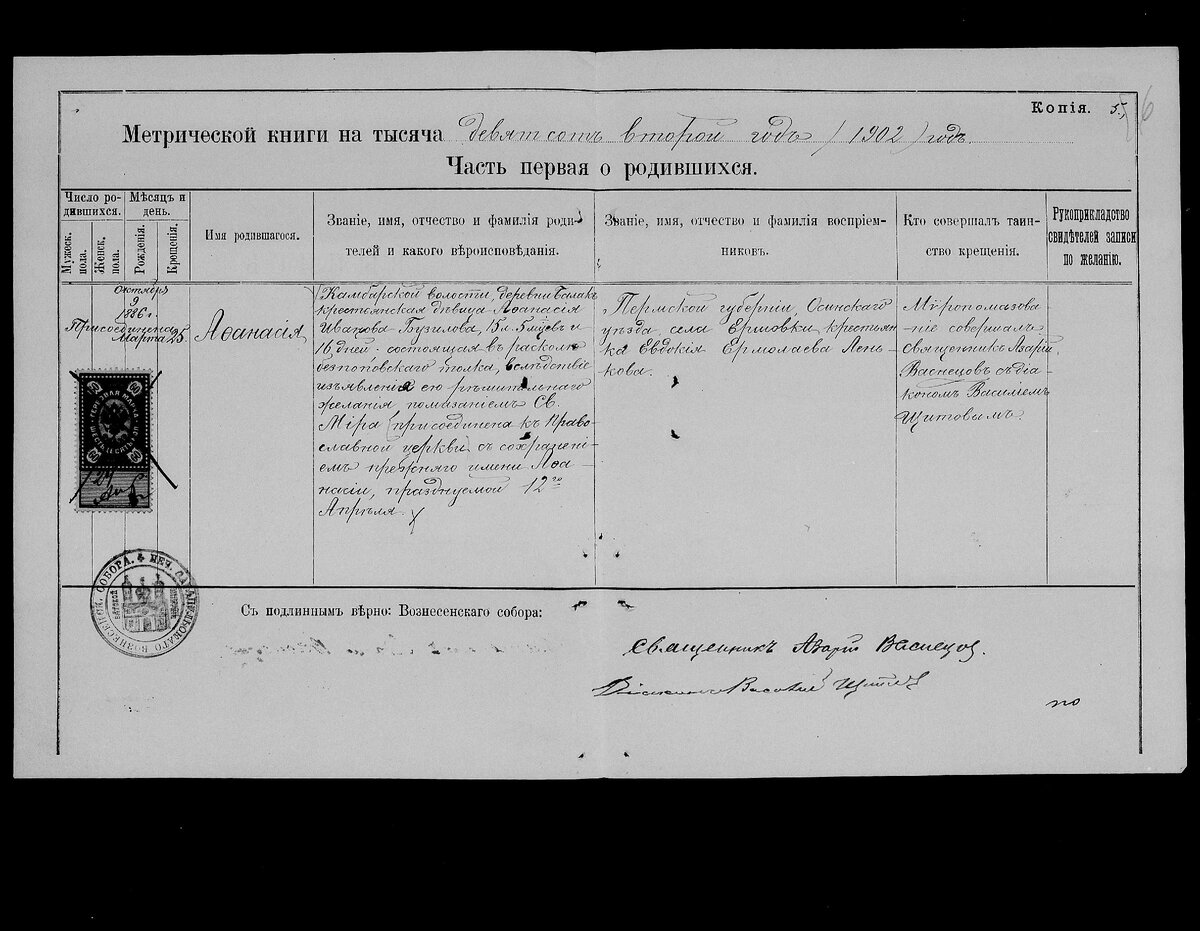 Копія. 5. 6
Метрической книги на тысяча девятсотъ второй годъ (1902) годъ.
Часть первая о родившихся.
Число родившихся.
Мужеск. пола.
Женск. пола.
Мѣсяцъ и день.
Рожденія.
Крещенія.
Имя родившагося.
Званіе, имя, отчество и фамилія родителей и какого вѣроисповѣданія.
Званіе, имя, отчество и фамилія воспріемниковъ.
Кто совершалъ таинство крещенія.
Рукоприкладство свидѣтелей записи по желанію.
Октября
9
1886 г.
Присоединена
Марта 25.
Аѳанасія
Камбарской волости, деревни Балак
крестьянская дѣвица Аѳанасія
Иванова Бузилова, 15 л. 5 мѣс. и
16 дней состоящая въ расколѣ
безпоповскаго толка, вслѣдствіе
изъявленія ею рѣшительнаго
желанія помазаніемъ Св.
Мѵра присоединена къ Право-
славной церкви съ сохранені-
емъ прежняго имени Аѳа-
насіи, празднуемой 12го
Апрѣля.
Пермской губерніи, Осинскаго
уѣзда, села Ершовки, крестьян
ка Евдокія Ермолаева Лень-
кова.
Мѵропомазова-
ніе совершалъ
священникъ Азарій
Васнецовъ съ діа-
кономъ Василіемъ
Щитовымъ
60 60
ГЕРБОВАЯ МАРКА
ПЕЧ. САРАПУЛЬСКАГО ВОЗНЕСЕНСК. СОБОРА.
ВЯТСКОЙ
Съ подлиннымъ вѣрно: Вознесенскаго собора:
Священникъ Азарій Васнецов.
Діаконъ Василій Щитовъ